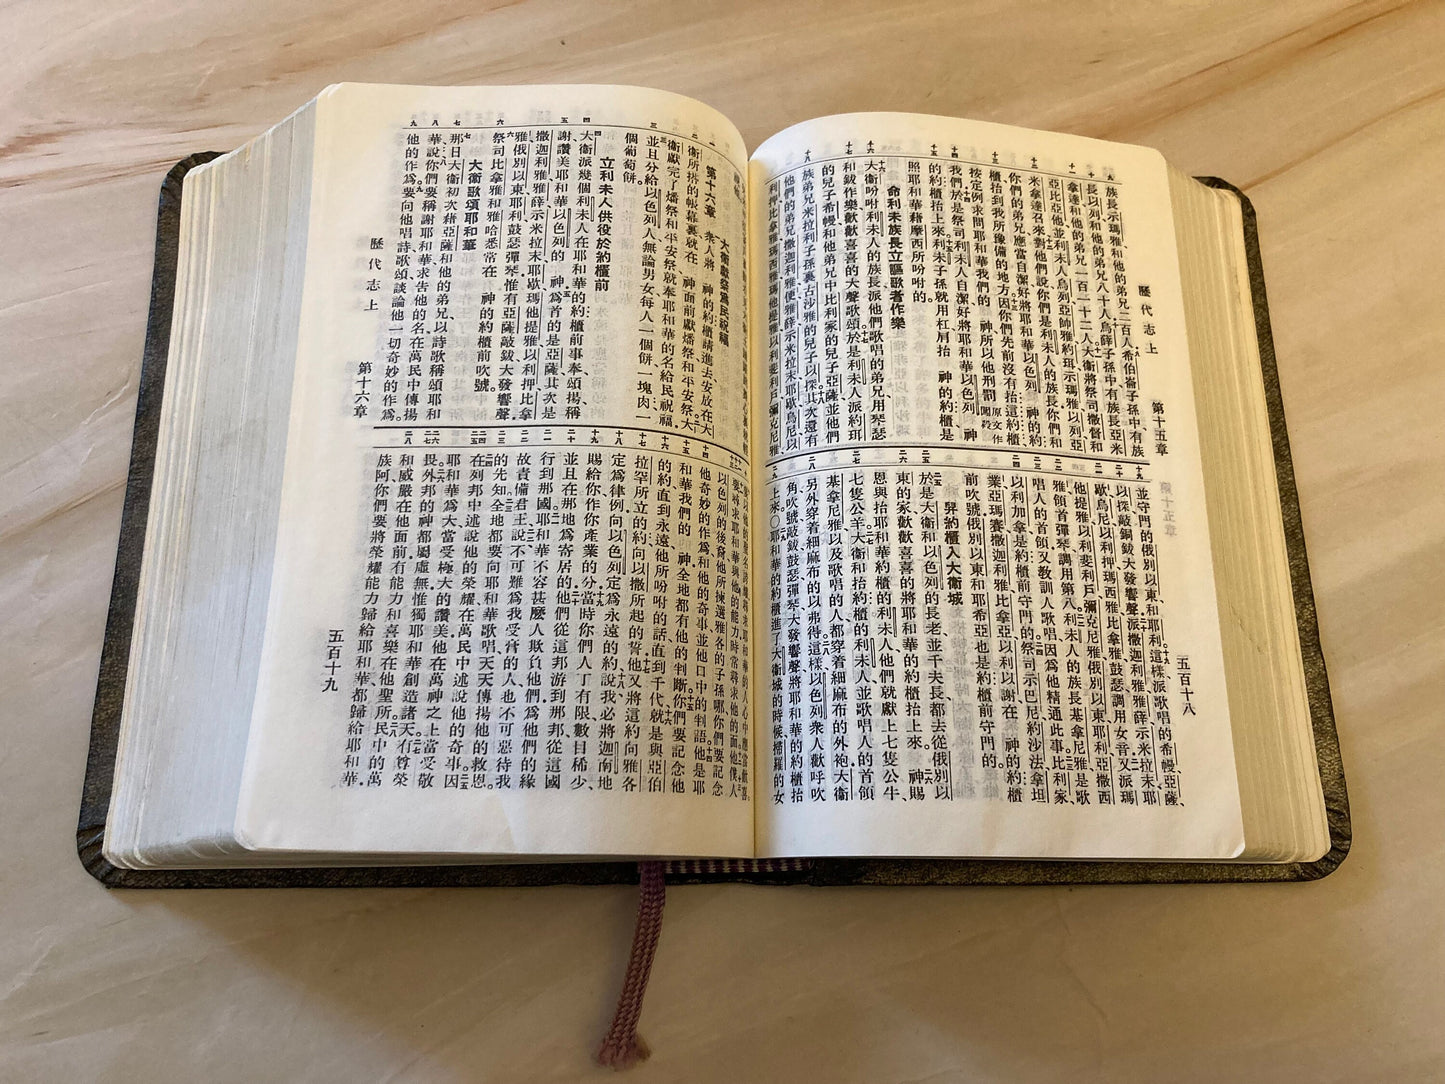 歷代志上
第十五章
五百十八
九 十 十一 十二 十三 十四 十五 十六 十七 十八
族長示瑪雅和他的弟兄二百人希伯崙子孫中有族
長以列和他的弟兄八十人烏薛子孫中有族長亞米
拿達和他的弟兄一百一十二人大衛將祭司撒督和
亞比亞他並利未人烏列亞帥雅約珥示瑪雅以列亞
米拿達召來對他們說你們是利未人的族長你們和
你們的弟兄應當自潔好將耶和華以色列 神的約
櫃抬到我所豫備的地方因你們先前沒有抬這約櫃
按定例求問耶和華我們的 神所以他刑罰 原文作闖殺
我們於是祭司利未人自潔好將耶和華以色列 神
的約櫃抬上來利未子孫就用杠肩抬 神的約櫃是
照耶和華藉摩西所吩咐的。
命利未族長立謳歌者作樂
大衛吩咐利未人的族長派他們歌唱的弟兄用琴瑟
和鈸作樂歡歡喜喜的大聲歌頌於是利未人派約珥
的兒子希幔和他弟兄中比利家的兒子亞薩並他們
族弟兄米拉利子孫裏古沙雅的兒子以探其次還有
他們的弟兄撒迦利雅便雅薛示米拉末耶歇烏尼以
利押比拿雅瑪西雅瑪他提雅以利斐利戶彌克尼雅
十九 二十 二一 二二 二三 二四 二五 二六 二七 二八 二九
並守門的俄別以東和耶利這樣派歌唱的希幔亞薩
以探敲銅鈸大發響聲派撒迦利雅雅薛示米拉末耶
歇烏尼以利押瑪西雅比拿雅鼓瑟調用女音又派瑪
他提雅以利斐利戶彌克尼雅俄別以東耶利亞撒西
雅領首彈琴調用第八利未人的族長基拿尼雅是歌
唱人的首領又教訓人歌唱因為他精通此事比利家
以利加拿是約櫃前守門的祭司示巴尼約沙法拿坦
業亞瑪賽撒迦利雅比拿亞以利以謝在 神的約櫃
前吹號俄別以東和耶希亞也是約櫃前守門的。
舁約櫃入大衛城
於是大衛和以色列的長老並千夫長都去從俄別以
東的家歡歡喜喜的將耶和華的約櫃抬上來 神賜
恩與抬耶和華約櫃的利未人他們就獻上七隻公牛
七隻公羊大衛和抬約櫃的利未人並歌唱人的首領
基拿尼雅以及歌唱的人都穿着細麻布的外袍大衛
另外穿着細麻布的以弗得這樣以色列眾人歡呼吹
角吹號敲鈸鼓瑟彈琴大發響聲將耶和華的約櫃抬
上來○耶和華的約櫃進了大衛城的時候掃羅的女
歷代志上
第十六章
五百十九
第十六章 大衛獻祭爲民祝福
衆人將 神的約櫃請進去安放在大
衛所搭的帳幕裏就在 神面前獻燔祭和平安祭大
衛獻完了燔祭和平安祭就奉耶和華的名給民祝福
並且分給以色列人無論男女每人一個餅一塊肉一
個葡萄餅。
立利未人供役於約櫃前
大衛派幾個利未人在耶和華的約櫃前事奉頌揚稱
謝讚美耶和華以色列的 神爲首的是亞薩其次是
撒迦利雅雅薛示米拉末耶歇瑪他提雅以利押比拿
雅俄別以東耶利鼓瑟彈琴惟有亞薩敲鈸大發響聲
祭司比拿雅和雅哈悉常在 神的約櫃前吹號。
大衛歌頌耶和華
那日大衛初次藉亞薩和他的弟兄以詩歌稱頌耶和
華說你們要稱謝耶和華求告他的名在萬民中傳揚
他的作爲要向他唱詩歌頌談論他一切奇妙的作爲
要尋求耶和華與他的能力時常尋求他的面他僕人
以色列的後裔他所揀選雅各的子孫哪你們要記念
他奇妙的作爲和他的奇事並他口中的判語他是耶
和華我們的 神全地都有他的判斷你們要記念他
的約直到永遠他所吩咐的話直到千代就是與亞伯
拉罕所立的約向以撒所起的誓他又將這約向雅各
定爲律例向以色列定爲永遠的約說我必將迦南地
賜給你作你產業的分當時你們人丁有限數目稀少
並且在那地爲寄居的他們從這邦游到那邦從這國
行到那國耶和華不容甚麼人欺負他們爲他們的緣
故責備君王說不可難爲我受膏的人也不可惡待我
的先知全地都要向耶和華歌唱天天傳揚他的救恩
在列邦中述說他的榮耀在萬民中述說他的奇事因
耶和華爲大當受極大的讚美他在萬神之上當受敬
畏外邦的神都屬虛無惟獨耶和華創造諸天有尊榮
和威嚴在他面前有能力和喜樂在他聖所民中的萬
族阿你們要將榮耀能力歸給耶和華都歸給耶和華